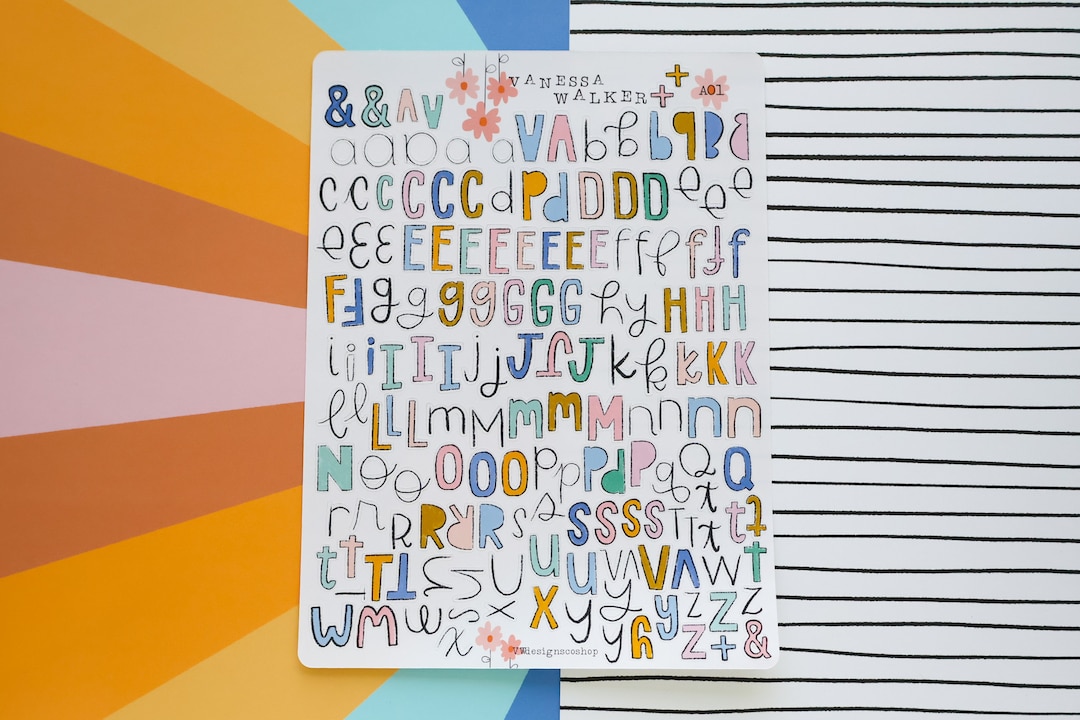 VANESSA
WALKER + + A01
& & A V
a a a a a V A b b b q B B
c c c C C C C d p d D D D e e e
e E E E E E E E E E E f f f f f f
F F g g g g g G G G h y H H H
i i i I I I J j J J J k k k K K
l l L L L m M m m M n n n n
N o o O O O p p P d P q Q Q
r r R R R R s s S S S S T T t t t t
t t T T s s U u u V V V V w t
W M w s x x X y y y y y z z z z + &
VWdesignscoshop